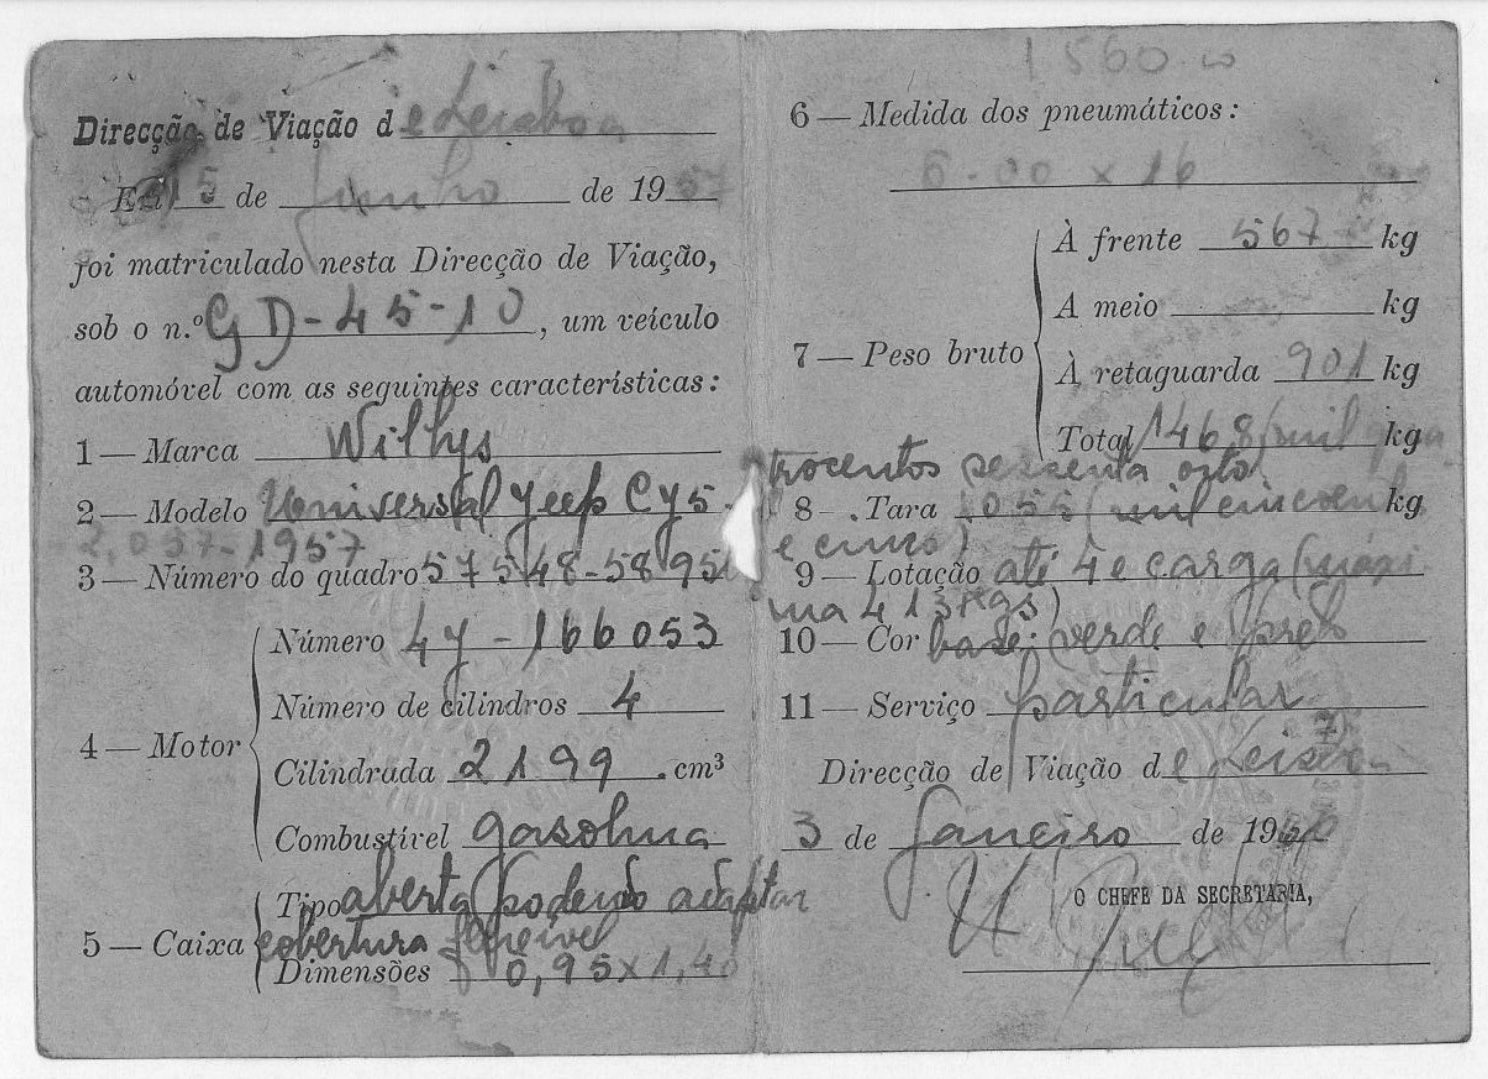 Direcção de Viação de Leisboa
Em 15 de Junho de 1957
foi matriculado nesta Direcção de Viação,
sob o n.º GD-45-10, um veículo
automóvel com as seguintes características:
1 — Marca Willys
2 — Modelo Universal Jeep CJ5-
2.057-1957
3 — Número do quadro 57548-5895
4 — Motor
Número 4J-166053
Número de cilindros 4
Cilindrada 2199 cm³
Combustível gasolina
5 — Caixa
Tipo aberta podendo adaptar
cobertura
Dimensões 0,95x1,40
1560
6 — Medida dos pneumáticos:
6-00 x 16
7 — Peso bruto
À frente 567 kg
A meio kg
À retaguarda 901 kg
Total 1468 (mil qua kg
trocentos sessenta oito)
8 — Tara 1055 (mil cincoent kg
e cinco)
9 — Lotação até 4 e carga (máxi
ma 413 kgs)
10 — Cor base: verde e preto
11 — Serviço particular
Direcção de Viação de Leisboa
3 de Janeiro de 19
O CHEFE DA SECRETARIA,